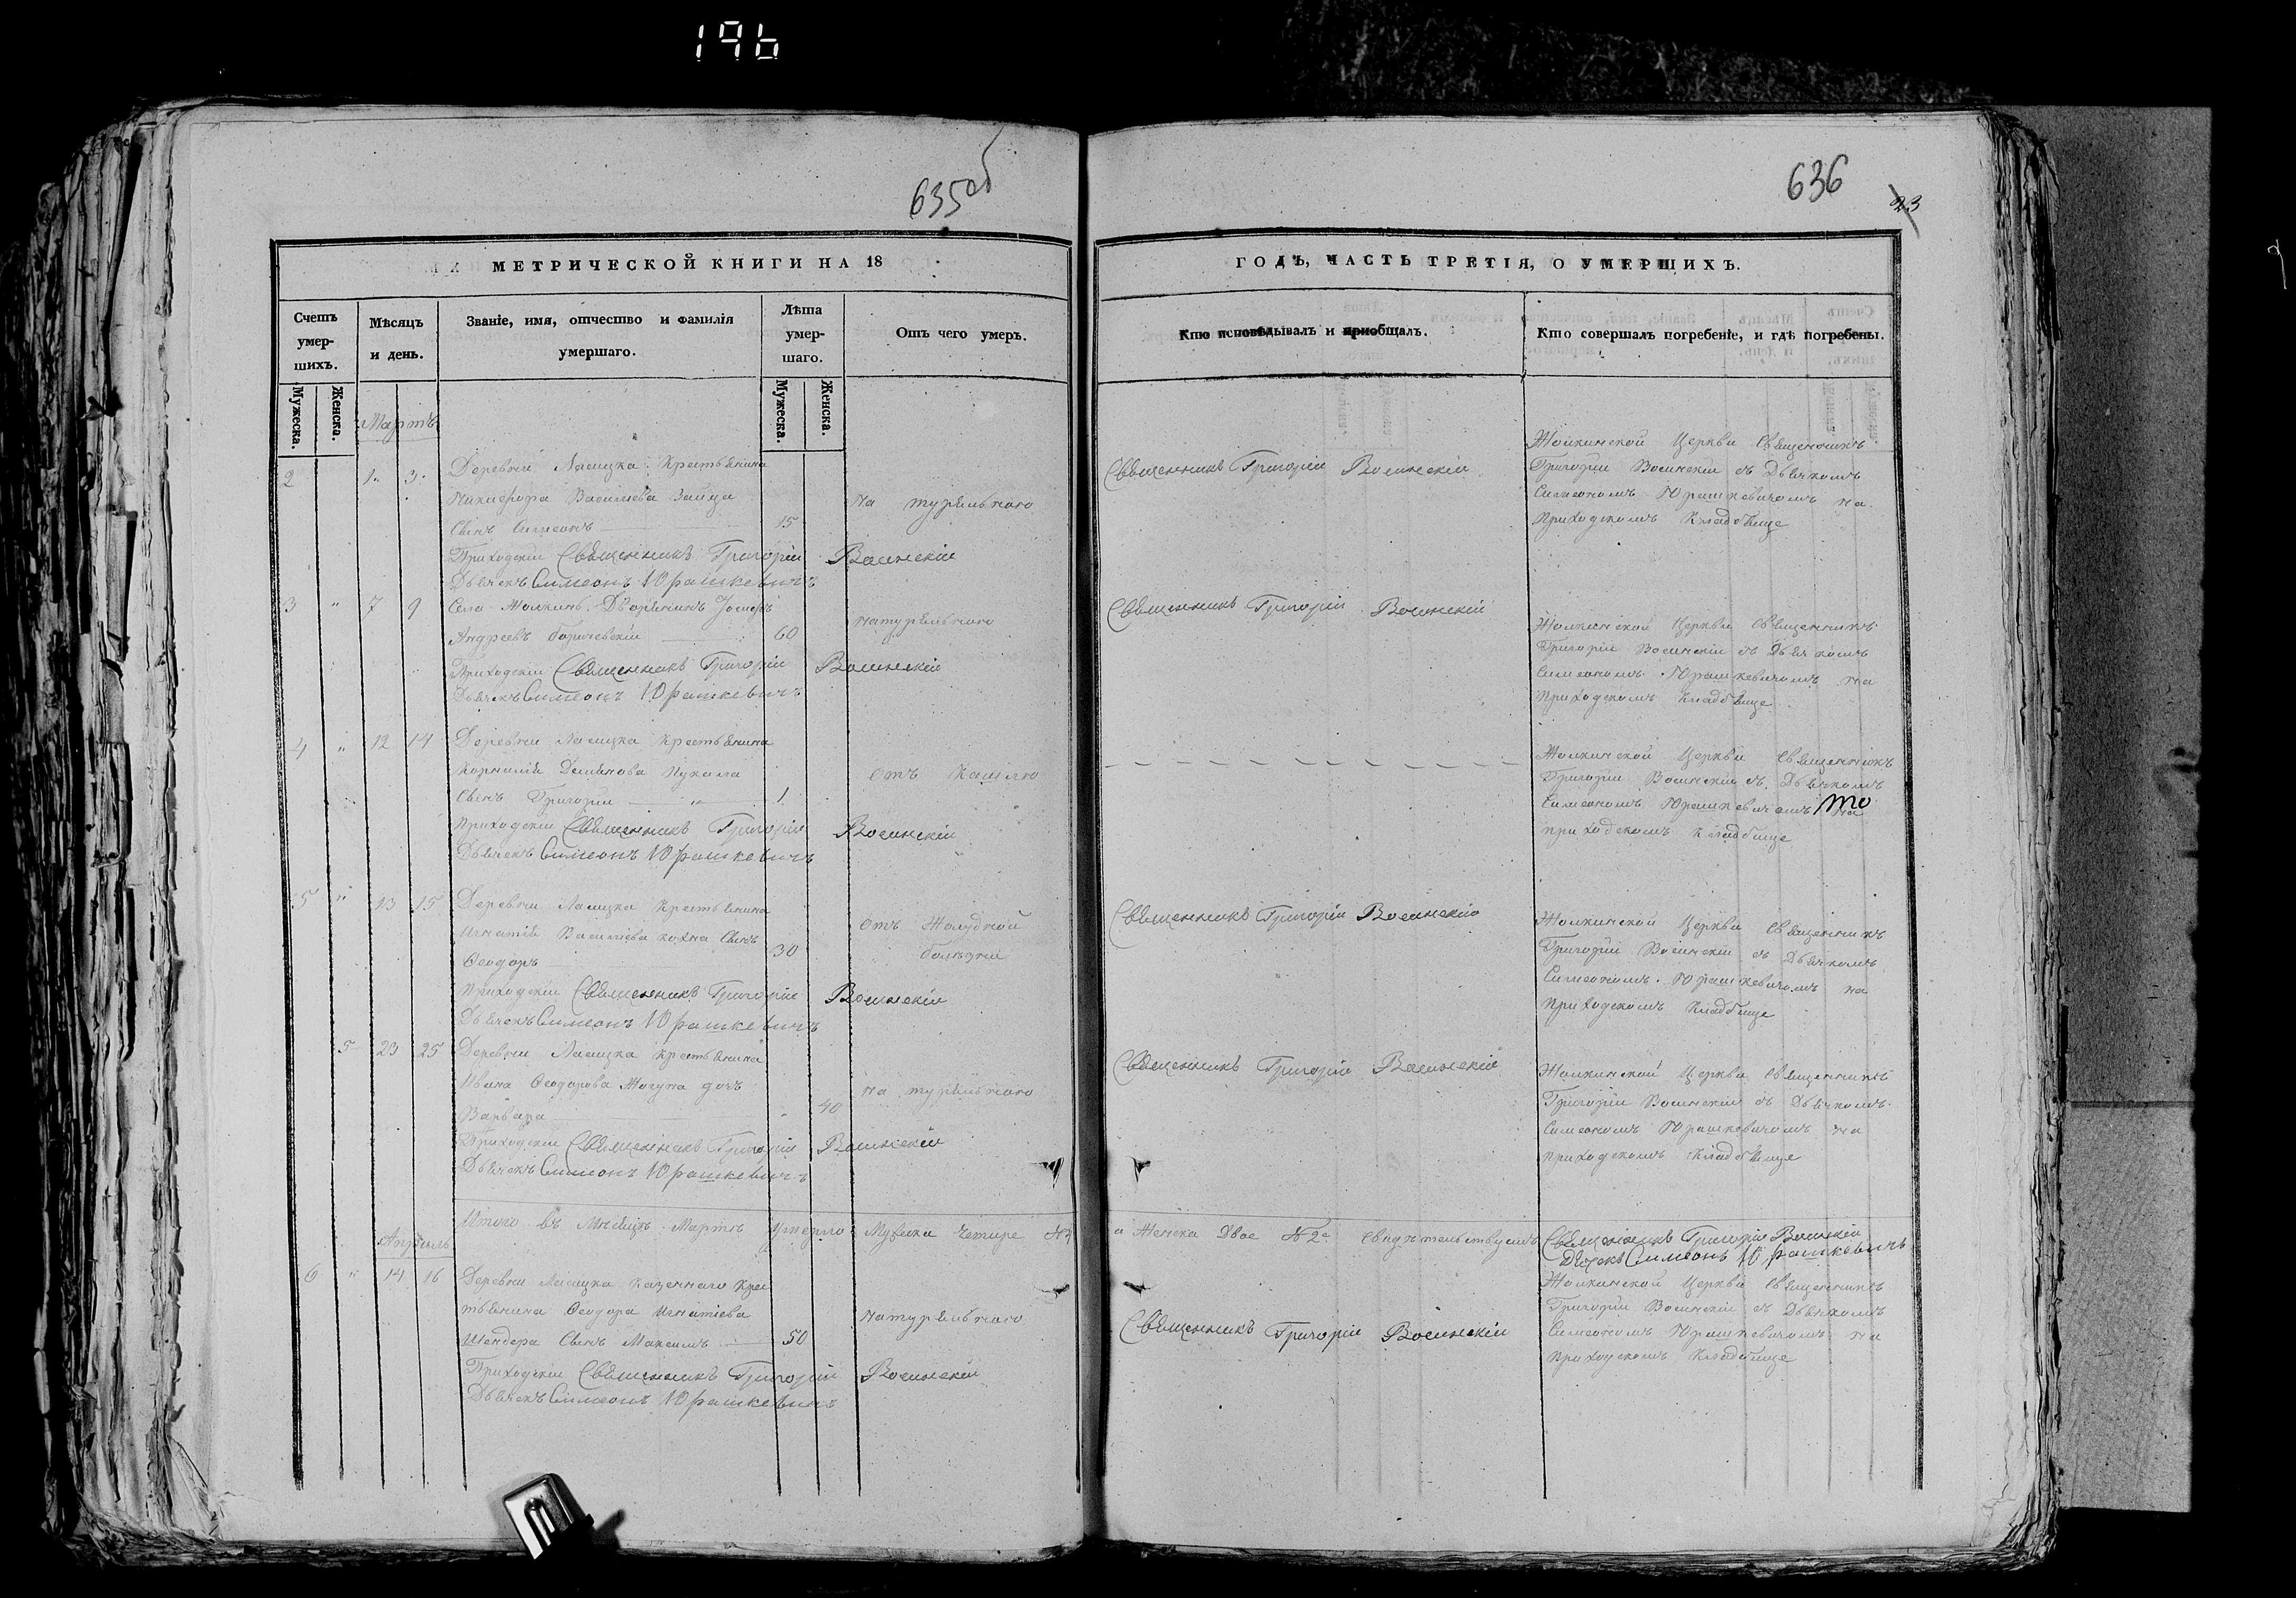 196
635об
636
23
МЕТРИЧЕСКОЙ КНИГИ НА 18
ГОДЪ, ЧАСТЬ ТРЕТІЯ, О УМЕРШИХЪ.
Счетъ умер-
шихъ.
Мѣсяцъ
и день.
Званіе, имя, отчество и фамилія
умершаго.
Лѣта
умер-
шаго.
Отъ чего умеръ.
Кто исповѣдывалъ и приобщалъ.
Кто совершалъ погребеніе, и гдѣ погребены.
Мужеска.
Женска.
Мужеска.
Женска.
Мартъ
2 1. 3. Деревни Ласицка Крестьянина
Никифора Василіева Зайца
Сынъ Симеонъ 15
на турального
Священникъ Григорій Восинскій
Приходскій Священникъ Григорій Восинскій
Дьячекъ Симеонъ Юрашкевичъ
Церкви Священникъ
Григорій Восинскій съ Дьячкомъ
Симеономъ Юрашкевичомъ на
Приходскомъ Кладбище
3 " 7 9 Села Дворянинъ
Андреевъ 60
натурального
Священникъ Григорій Восинскій
Приходскій Священникъ Григорій Восинскій
Дьячекъ Симеонъ Юрашкевичъ
Церкви Священникъ
Григорій Восинскій съ Дьячкомъ
Симеономъ Юрашкевичомъ на
Приходскомъ Кладбище
4 " 12 14 Деревни Ласицка Крестьянина
Корнилія
Сынъ Григорій " 1
отъ Кашлю
Приходскій Священникъ Григорій Восинскій
Дьячекъ Симеонъ Юрашкевичъ
Церкви Священникъ
Григорій Восинскій съ Дьячкомъ
Симеономъ Юрашкевичомъ на
приходскомъ Кладбище
5 " 13 15 Деревни Ласицка Крестьянина
Игнатія Василіева Сынъ
Феодоръ 30
отъ
болезни
Священникъ Григорій Восинскій
Приходскій Священникъ Григорій Восинскій
Дьячекъ Симеонъ Юрашкевичъ
Церкви Священникъ
Григорій Восинскій съ Дьячкомъ
Симеономъ Юрашкевичомъ на
приходскомъ Кладбище
5 23 25 Деревни Ласицка Крестьянина
Ивана Феодорова дочь
Варвара 40
на турального
Священникъ Григорій Восинскій
Приходскій Священникъ Григорій Восинскій
Дьячекъ Симеонъ Юрашкевичъ
Церкви Священникъ
Григорій Восинскій съ Дьячкомъ
Симеономъ Юрашкевичомъ на
приходскомъ Кладбище
Итого въ Мѣсяцѣ Мартѣ умерло Мужеска четыре
а Женска Двое № 2
Священникъ Григорій Восинскій
Дьячекъ Симеонъ Юрашкевичъ
Апрѣль
6 " 14 16 Деревни Ласицка Казенного Крес
тьянина Феодора Игнатіева
Шендера Сынъ Максимъ 50
натурального
Священникъ Григорій Восинскій
Приходскій Священникъ Григорій Восинскій
Дьячекъ Симеонъ Юрашкевичъ
Церкви Священникъ
Григорій Восинскій съ Дьячкомъ
Симеономъ Юрашкевичомъ на
приходскомъ Кладбище